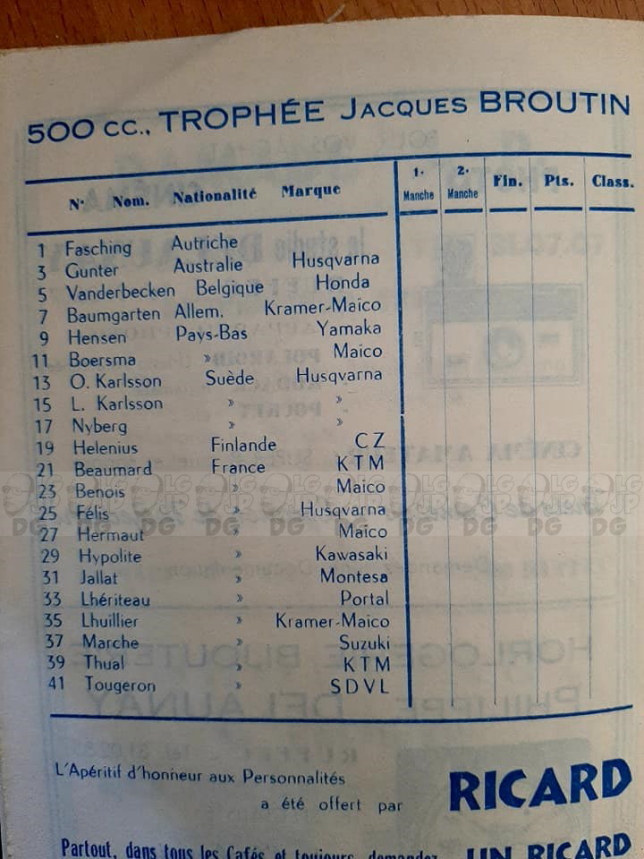 500 CC., TROPHÉE JACQUES BROUTIN
N° Nom. Nationalité Marque 1° Manche 2° Manche Fin. Pts. Class.
1 Fasching Autriche
3 Gunter Australie Husqvarna
5 Vanderbecken Belgique Honda
7 Baumgarten Allem. Kramer-Maico
9 Hensen Pays-Bas Yamaka
11 Boersma » Maico
13 O. Karlsson Suède Husqvarna
15 L. Karlsson » »
17 Nyberg » »
19 Helenius Finlande CZ
21 Beaumard France KTM
23 Benois » Maico
25 Félis » Husqvarna
27 Hermaut » Maico
29 Hypolite » Kawasaki
31 Jallat » Montesa
33 Lhériteau » Portal
35 Lhuillier » Kramer-Maico
37 Marche » Suzuki
39 Thual » KTM
41 Tougeron » SDVL
L'Apéritif d'honneur aux Personnalités
a été offert par RICARD
Partout, dans tous les Cafés et toujours, demandez UN RICARD